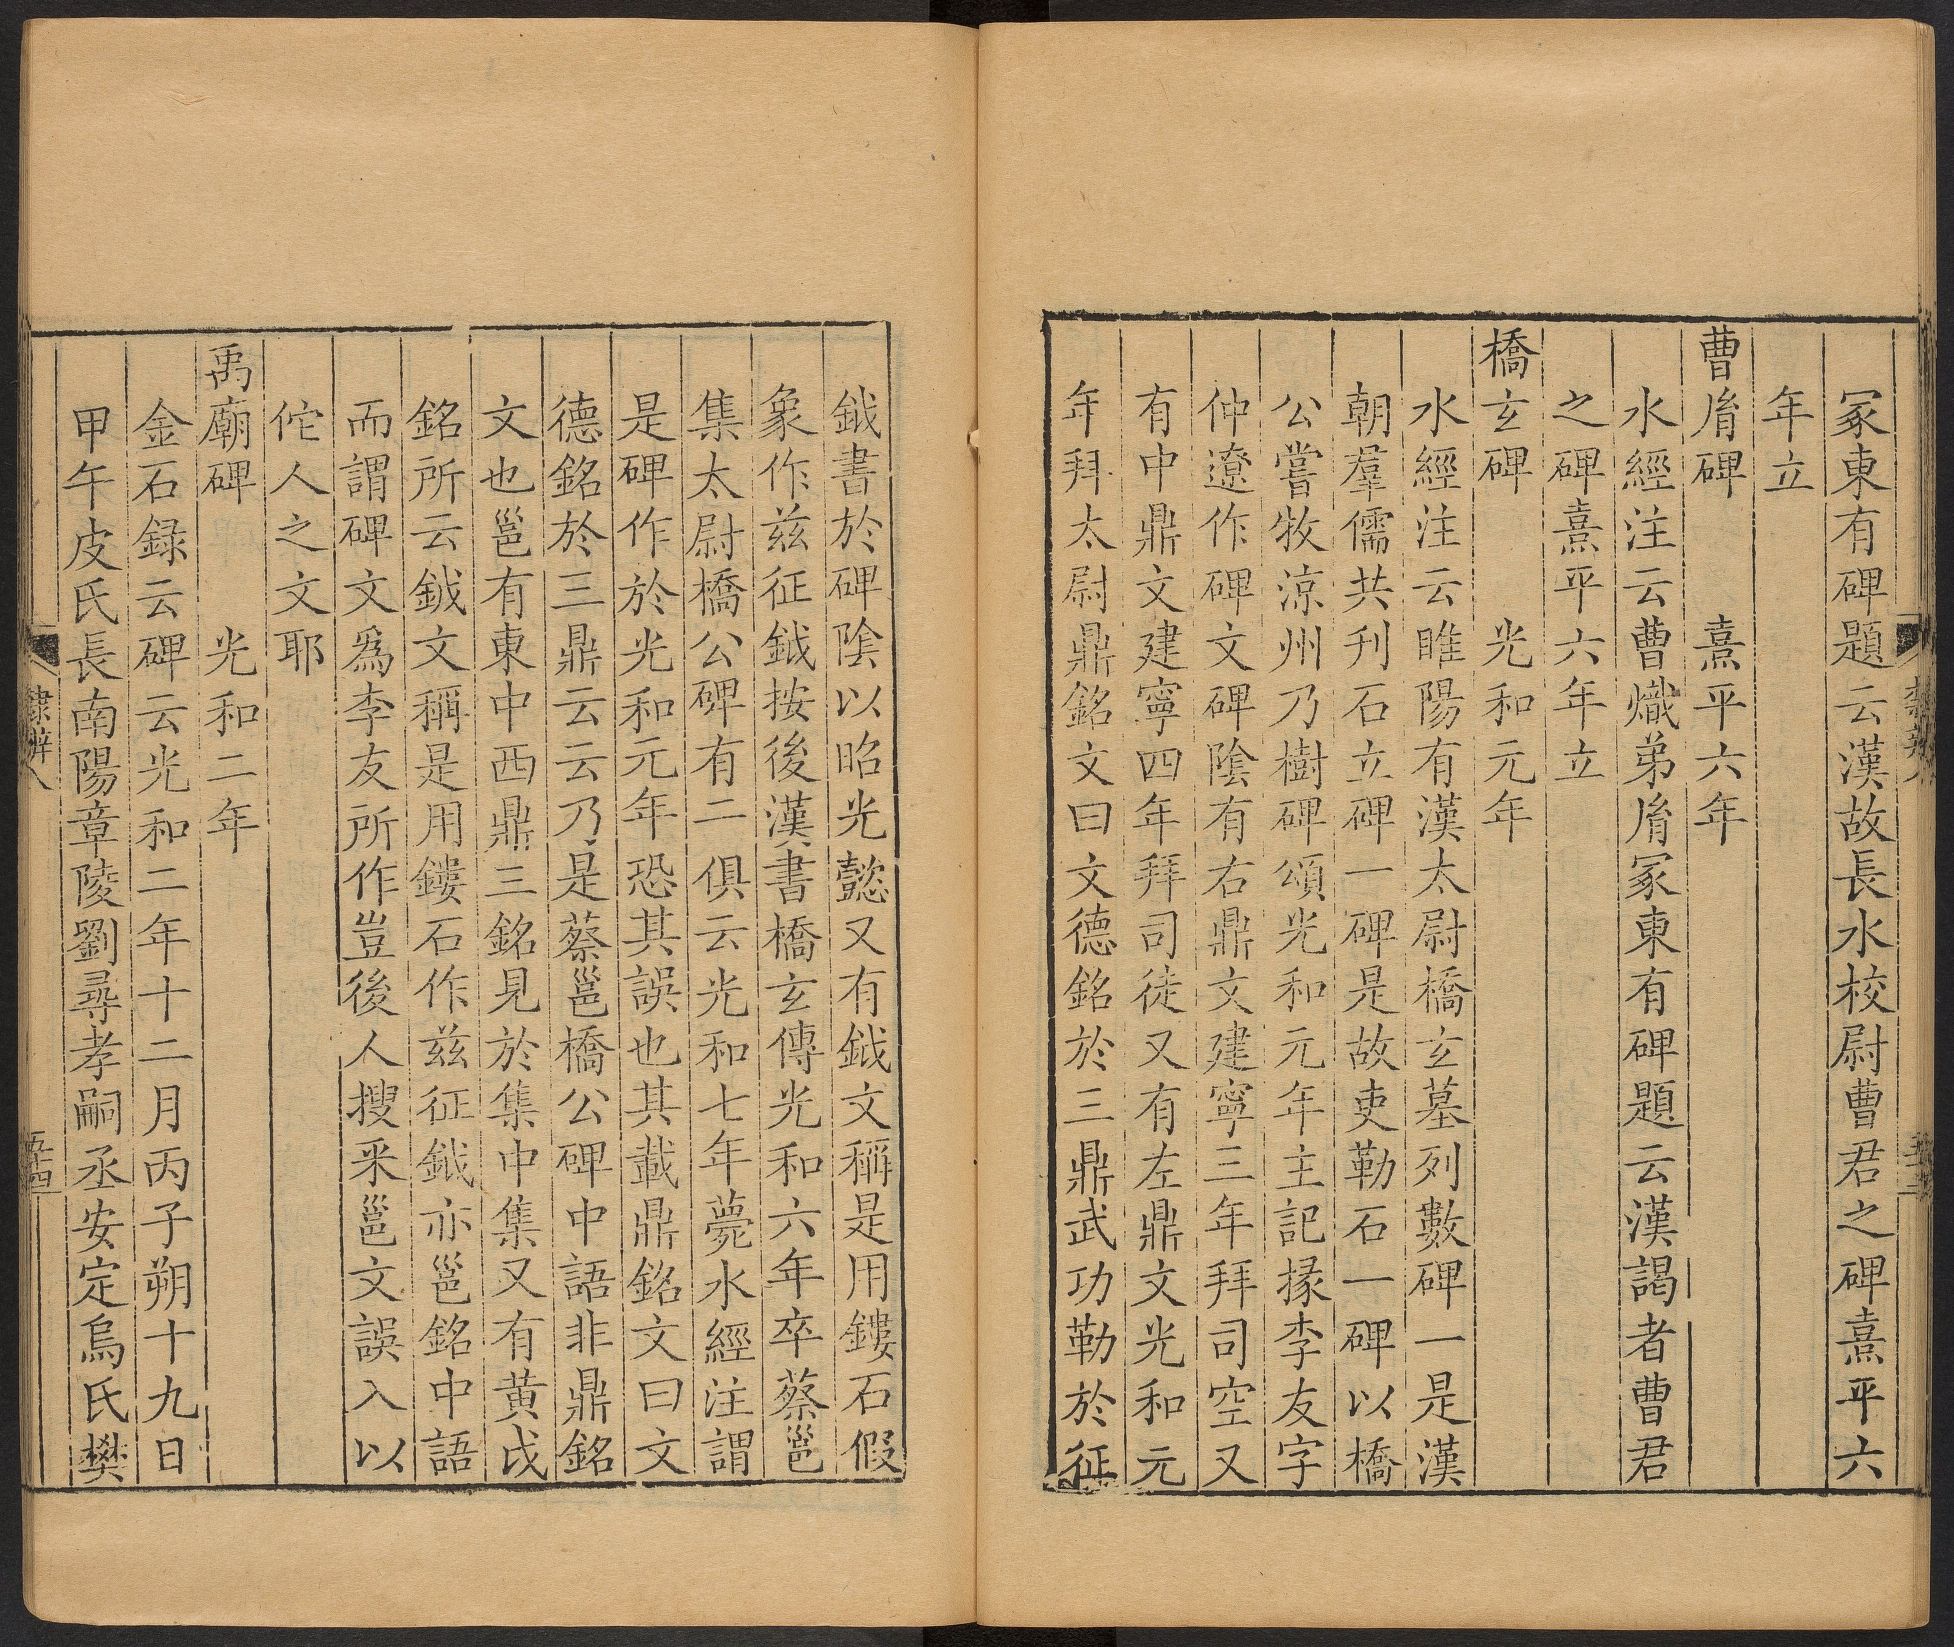 冢東有碑題云漢故長水校尉曹君之碑熹平六
年立
曹胤碑 熹平六年
水經注云曹熾弟胤冢東有碑題云漢謁者曹君
之碑熹平六年立
橋玄碑 光和元年
水經注云睢陽有漢太尉橋玄墓列數碑一是漢
朝羣儒共刊石立碑一碑是故吏勒石一碑以橋
公嘗牧涼州乃樹碑頌光和元年主記掾李友字
仲遼作碑文碑陰有右鼎文建寧三年拜司空又
有中鼎文建寧四年拜司徒又有左鼎文光和元
年拜太尉鼎銘文曰文德銘於三鼎武功勒於征
鉞書於碑陰以昭光懿又有鉞文稱是用鏤石假
象作兹征鉞按後漢書橋玄傳光和六年卒蔡邕
集太尉橋公碑有二俱云光和七年薨水經注謂
是碑作於光和元年恐其誤也其載鼎銘文曰文
德銘於三鼎云云乃是蔡邕橋公碑中語非鼎銘
文也邕有東中西鼎三銘見於集中集又有黄戉
銘所云鉞文稱是用鏤石作兹征鉞亦邕銘中語
而謂碑文爲李友所作豈後人搜采邕文誤入以
佗人之文耶
禹廟碑 光和二年
金石録云碑云光和二年十二月丙子朔十九日
甲午皮氏長南陽章陵劉尋孝嗣丞安定烏氏樊
隸辨八
五十四